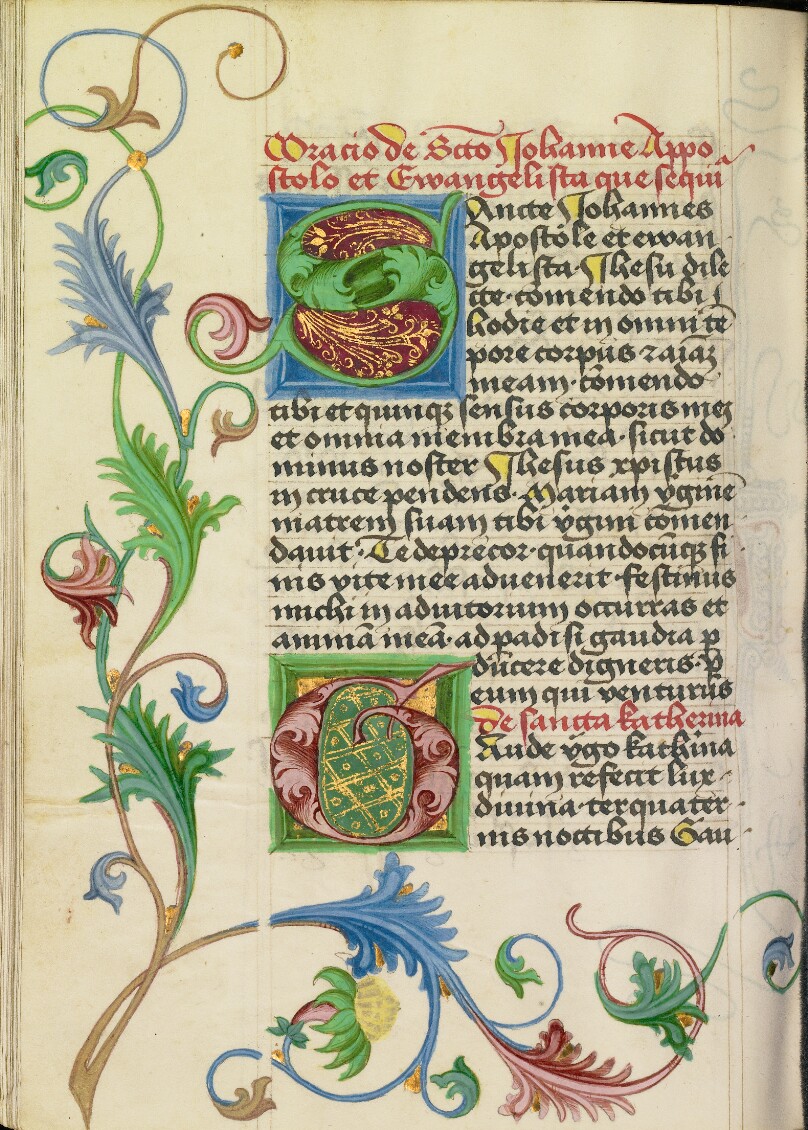 Oracio de Scto Johanne Appo
stolo et Ewangelista que sequi
SAncte Johannes
Apostole et ewan
gelista · Jhesu dile
cte · comendo tibi
hodie et in omni tē
pore corpus ⁊ aīaꝫ
meam · cōmendo
tibi et quinqꝫ sensus corporis mei
et omnia membra mea · sicut do
minus noster Jhesus xpistus
in cruce pendens · Mariam v̾gine
matrem suam tibi v̾gini cōmen
dauit · Te deprecor · quandocūqꝫ fi
nis vite mee aduenerit · festinus
michi in adiutorium occurras et
animā meā · ad padisi gaudia p
ducere digneris · P
eum qui venturus
de sancta katherina
GAude v̾go kath̾ina
quam refecit lux
diuina · ter quater
nis noctibus Gau